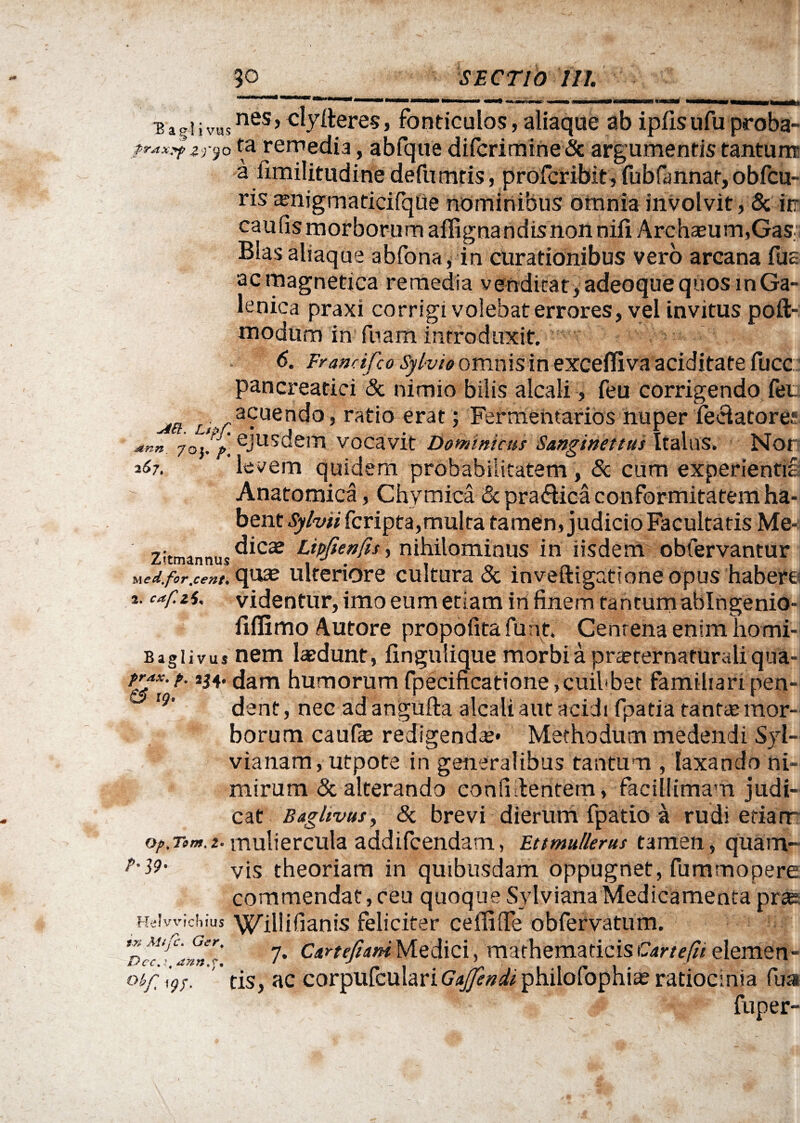 30 SECTIO III.
Baglivus nes, clysteres, fonticulos, aliaque ab ipsis usu proba-
prax. p. 2 90 ta remedia, absque discrimine & argumentis tantum
à similitudine desumtis, proscribit, subsannat, obscu-
ris ænigmaticisque nominibus omnia involvit, & in
causis morborum assignandis non nisi Archæum, Gas
Blas aliaque absona, in curationibus verò arcana sua
ac magnetica remedia venditat, adeoque quos in Ga-
lenica praxi corrigi volebat errores, vel invitus post-
modum in suam introduxit.
6. Francisco Sylvio omnis in excessiva aciditate succi
pancreatici & nimio bilis alcali, seu corrigendo seu
acuendo, ratio erat; Fermentarios nuper sectatores
Act. Lips.
ann 703. p. ejusdem vocavit Dominicus Sanginettus Italus. Non
267. levem quidem probabilitatem, & cum experientiâ
Anatomicâ, Chymicâ & practicâ conformitatem ha-
bent Sylvii scripta, multa tamen, judicio Facultatis Me-
dicæ Lipsiensis, nihilominus in iisdem observantur
Zitmannus
Med. for. cent. quæ ulteriore cultura & investigatione opus habere
2. cas. 26. videntur, imo eum etiam in finem tantum ab Ingenio-
sissimo Autore proposita sunt. Centena enim homi-
Baglivus nem lædunt, singulique morbi à præternaturali qua-
prax. p. 234. dam humorum specificatione, cuilibet familiari pen-
& 19. dent, nec ad angusta alcali aut acidi spatia tantæ mor-
borum causæ redigendæ. Methodum medendi Syl-
vianam, utpote in generalibus tantum, laxando ni-
mirum & alterando consistentem, facillimam judi-
cat Baglivus, & brevi dierum spatio à rudi etiam
Op. Tom. 2. muliercula addiscendam, Ettmullerus tamen, quam-
p. 39. vis theoriam in quibusdam oppugnet, summopere
commendat, ceu quoque Sylviana Medicamenta præ
Helvvichius Willisianis feliciter cessisse observatum.
in Misc. Ger. 7. Cartesiani Medici, mathematicis Cartesii elemen-
Dec. ann.
Obs. 195. tis, ac corpusculari Gassendi philosophiæ ratiocinia sua
super-